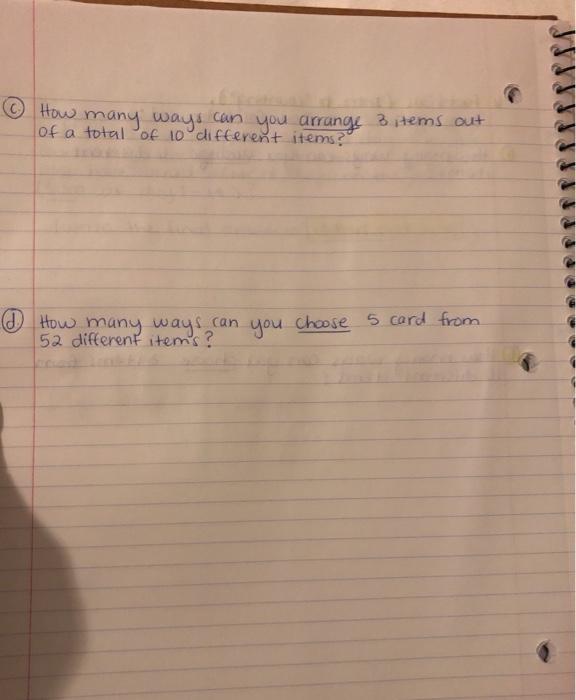 (c) How many ways can you arrange 3 items out
of a total of 10 different items?
(d) How many ways can you choose 5 card from
52 different items?